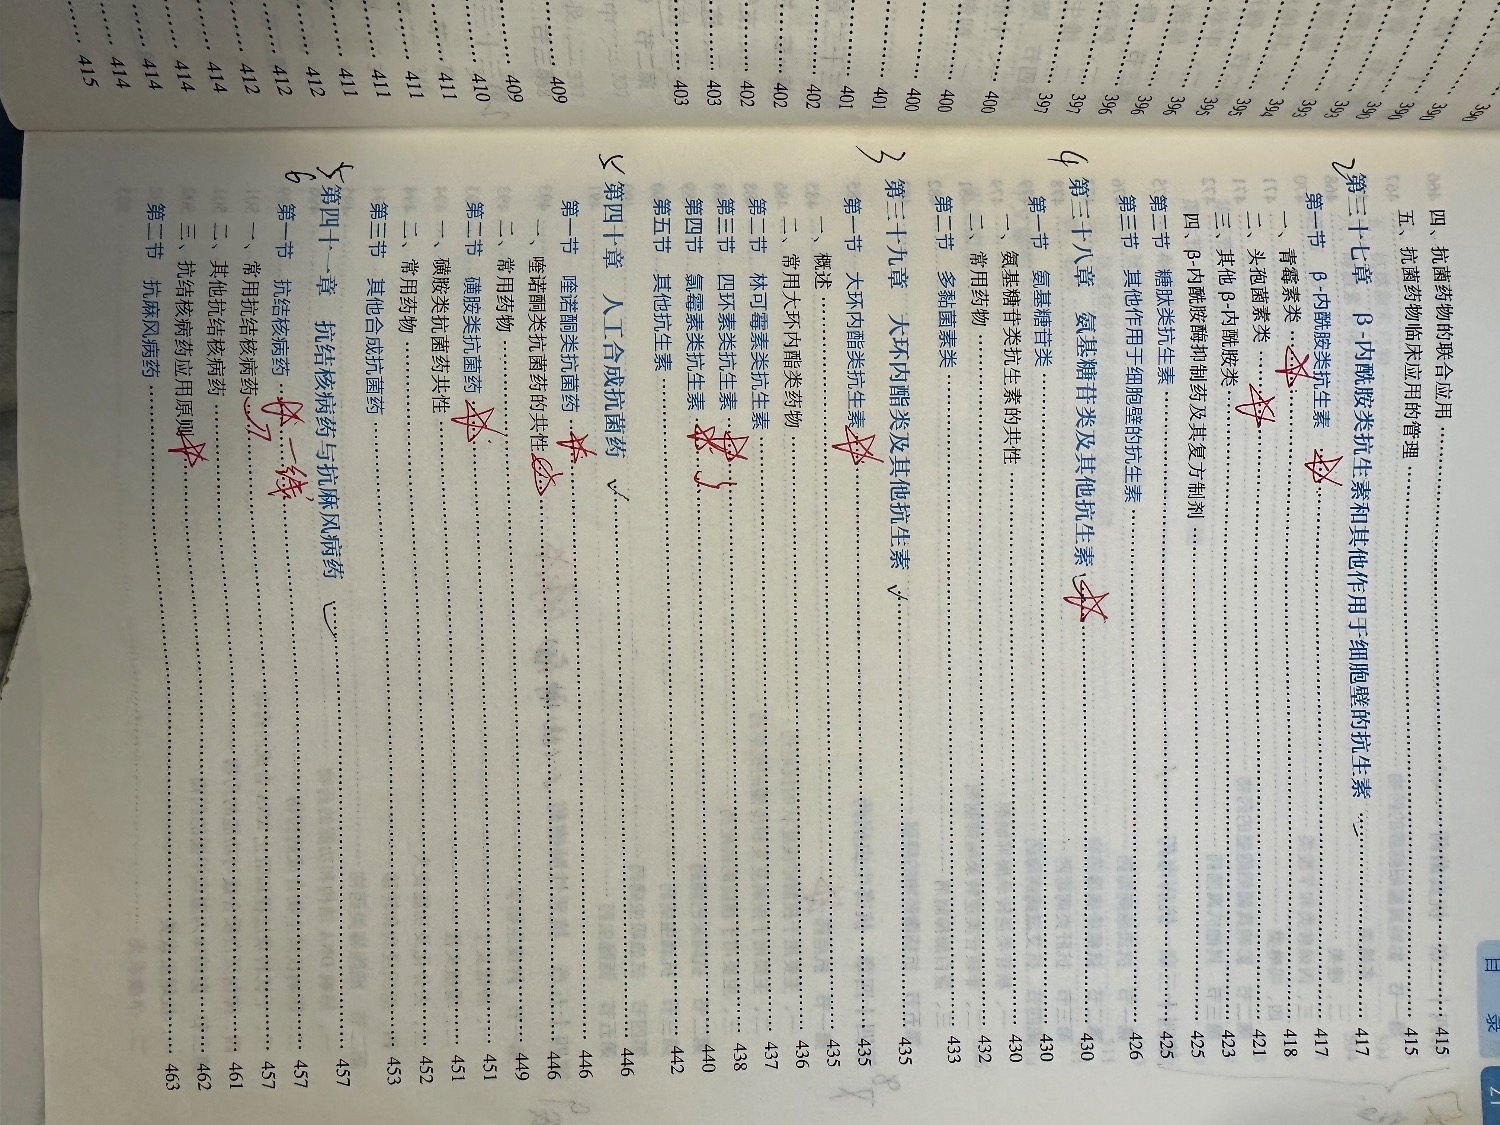 目 录
21
四、抗菌药物的联合应用 415
五、抗菌药物临床应用的管理 415
2 第三十七章 β-内酰胺类抗生素和其他作用于细胞壁的抗生素 417
第一节 β-内酰胺类抗生素 417
一、青霉素类 418
二、头孢菌素类 421
三、其他 β-内酰胺类 423
四、β-内酰胺酶抑制药及其复方制剂 425
第二节 糖肽类抗生素 425
第三节 其他作用于细胞壁的抗生素 426
4 第三十八章 氨基糖苷类及其他抗生素 430
第一节 氨基糖苷类 430
一、氨基糖苷类抗生素的共性 430
二、常用药物 432
第二节 多黏菌素类 433
3 第三十九章 大环内酯类及其他抗生素 435
第一节 大环内酯类抗生素 435
一、概述 435
二、常用大环内酯类药物 436
第二节 林可霉素类抗生素 437
第三节 四环素类抗生素 438
第四节 氯霉素类抗生素 440
第五节 其他抗生素 442
5 第四十章 人工合成抗菌药 446
第一节 喹诺酮类抗菌药 446
一、喹诺酮类抗菌药的共性 446
二、常用药物 449
第二节 磺胺类抗菌药 451
一、磺胺类抗菌药共性 451
二、常用药物 452
第三节 其他合成抗菌药 453
6 第四十一章 抗结核病药与抗麻风病药 457
第一节 抗结核病药 一线 457
一、常用抗结核病药 457
二、其他抗结核病药 461
三、抗结核病药应用原则 462
第二节 抗麻风病药 463
390
390
390
390
390
393
393
394
395
395
396
396
396
397
397
400
400
400
401
401
402
402
402
403
403
409
409
410
411
411
411
411
412
412
412
414
414
414
414
415